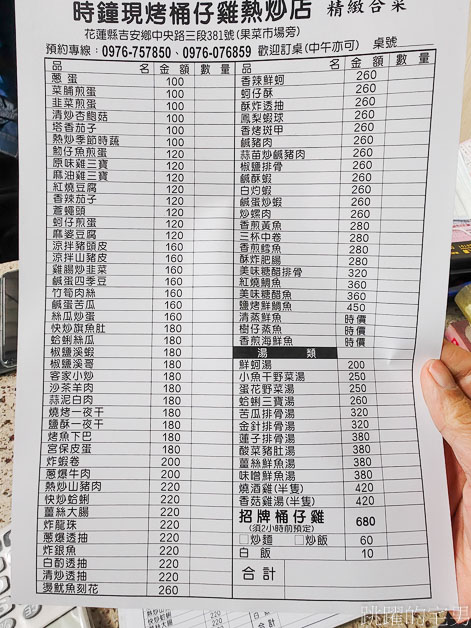 時鐘現烤桶仔雞熱炒店 精緻合菜
花蓮縣吉安鄉中央路三段381號(果菜市場旁)
預約專線：0976-757850、0976-076859 歡迎訂桌(中午亦可) 桌號
品 名 金 額 數 量
蔥蛋 100
菜脯煎蛋 100
韭菜煎蛋 100
清炒杏鮑菇 100
塔香茄子 100
熱炒季節時蔬 100
魩仔魚煎蛋 120
原味雞三寶 120
麻油雞三寶 120
紅燒豆腐 120
香辣茄子 120
蒼蠅頭 120
蚵仔煎蛋 120
麻婆豆腐 120
涼拌豬頭皮 160
涼拌山豬皮 160
雞腸炒韭菜 160
鹹蛋四季豆 160
竹筍肉絲 160
鹹蛋苦瓜 160
絲瓜炒蛋 160
快炒旗魚肚 180
蛤蜊絲瓜 180
椒鹽溪蝦 180
椒鹽溪哥 180
客家小炒 180
沙茶羊肉 180
蒜泥白肉 180
燒烤一夜干 180
鹽酥一夜干 180
烤魚下巴 180
宮保皮蛋 180
炸蝦卷 200
蔥爆牛肉 200
熱炒山豬肉 220
快炒蛤蜊 220
薑絲大腸 220
炸龍珠 220
蔥爆透抽 220
炸銀魚 220
白酌透抽 220
清炒透抽 220
燙魷魚刻花 260
品 名 金 額 數 量
香辣鮮蚵 260
蚵仔酥 260
酥炸透抽 260
鳳梨蝦球 260
香烤斑甲 260
鹹豬肉 260
蒜苗炒鹹豬肉 260
椒鹽排骨 260
鹹酥蝦 260
白灼蝦 260
鹹蛋炒蝦 260
炒螺肉 260
香煎黃魚 280
三杯中卷 280
香煎鱈魚 280
酥炸肥腸 280
美味糖醋排骨 320
紅燒鯛魚 360
美味糖醋魚 360
鹽烤鮮鯛魚 450
清蒸鮮魚 時價
樹仔蒸魚 時價
香煎海鮮魚 時價
湯 類
鮮蚵湯 200
小魚干野菜湯 250
蛋花野菜湯 250
蛤蜊三寶湯 260
苦瓜排骨湯 320
金針排骨湯 320
蓮子排骨湯 380
酸菜豬肚湯 380
薑絲鮮魚湯 380
味噌鮮魚湯 380
燒酒雞(半隻) 420
香菇雞湯(半隻) 420
招牌桶仔雞 680
(須2小時前預定)
□炒麵 □炒飯 60
白飯 10
合計
跳躍的宅男